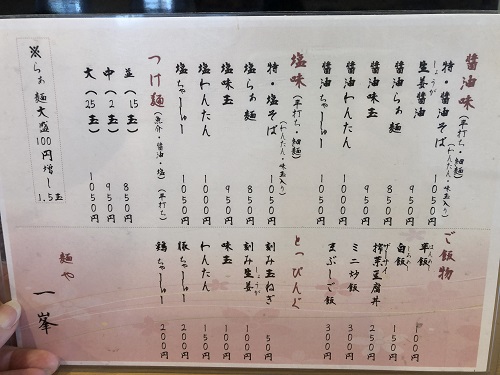 醤油味(平打ち・細麺)
特・醤油そば(わんたん・味玉入り) 1050円
生姜醤油 950円
しょうが
醤油らぁ麺 850円
醤油味玉 950円
醤油わんたん 1000円
醤油ちゃーしゅー 1050円
塩味(平打ち・細麺)
特・塩そば(わんたん・味玉入り) 1050円
塩らぁ麺 850円
塩味玉 950円
塩わんたん 1000円
塩ちゃーしゅー 1050円
つけ麺(魚介・醤油・塩)(平打ち)
並(1.5玉) 850円
中(2玉) 950円
大(2.5玉) 1050円
※らぁ麺大盛100円増し 1.5玉
ご飯物
半飯 100円
白飯 150円
搾菜豆腐丼 250円
ザーサイ
ミニ炒飯 300円
まぶしご飯 300円
とっぴんぐ
刻み玉ねぎ 50円
刻み生姜 100円
しょうが
味玉 100円
わんたん 150円
豚ちゃーしゅー 200円
鶏ちゃーしゅー 200円
麺や 一峯